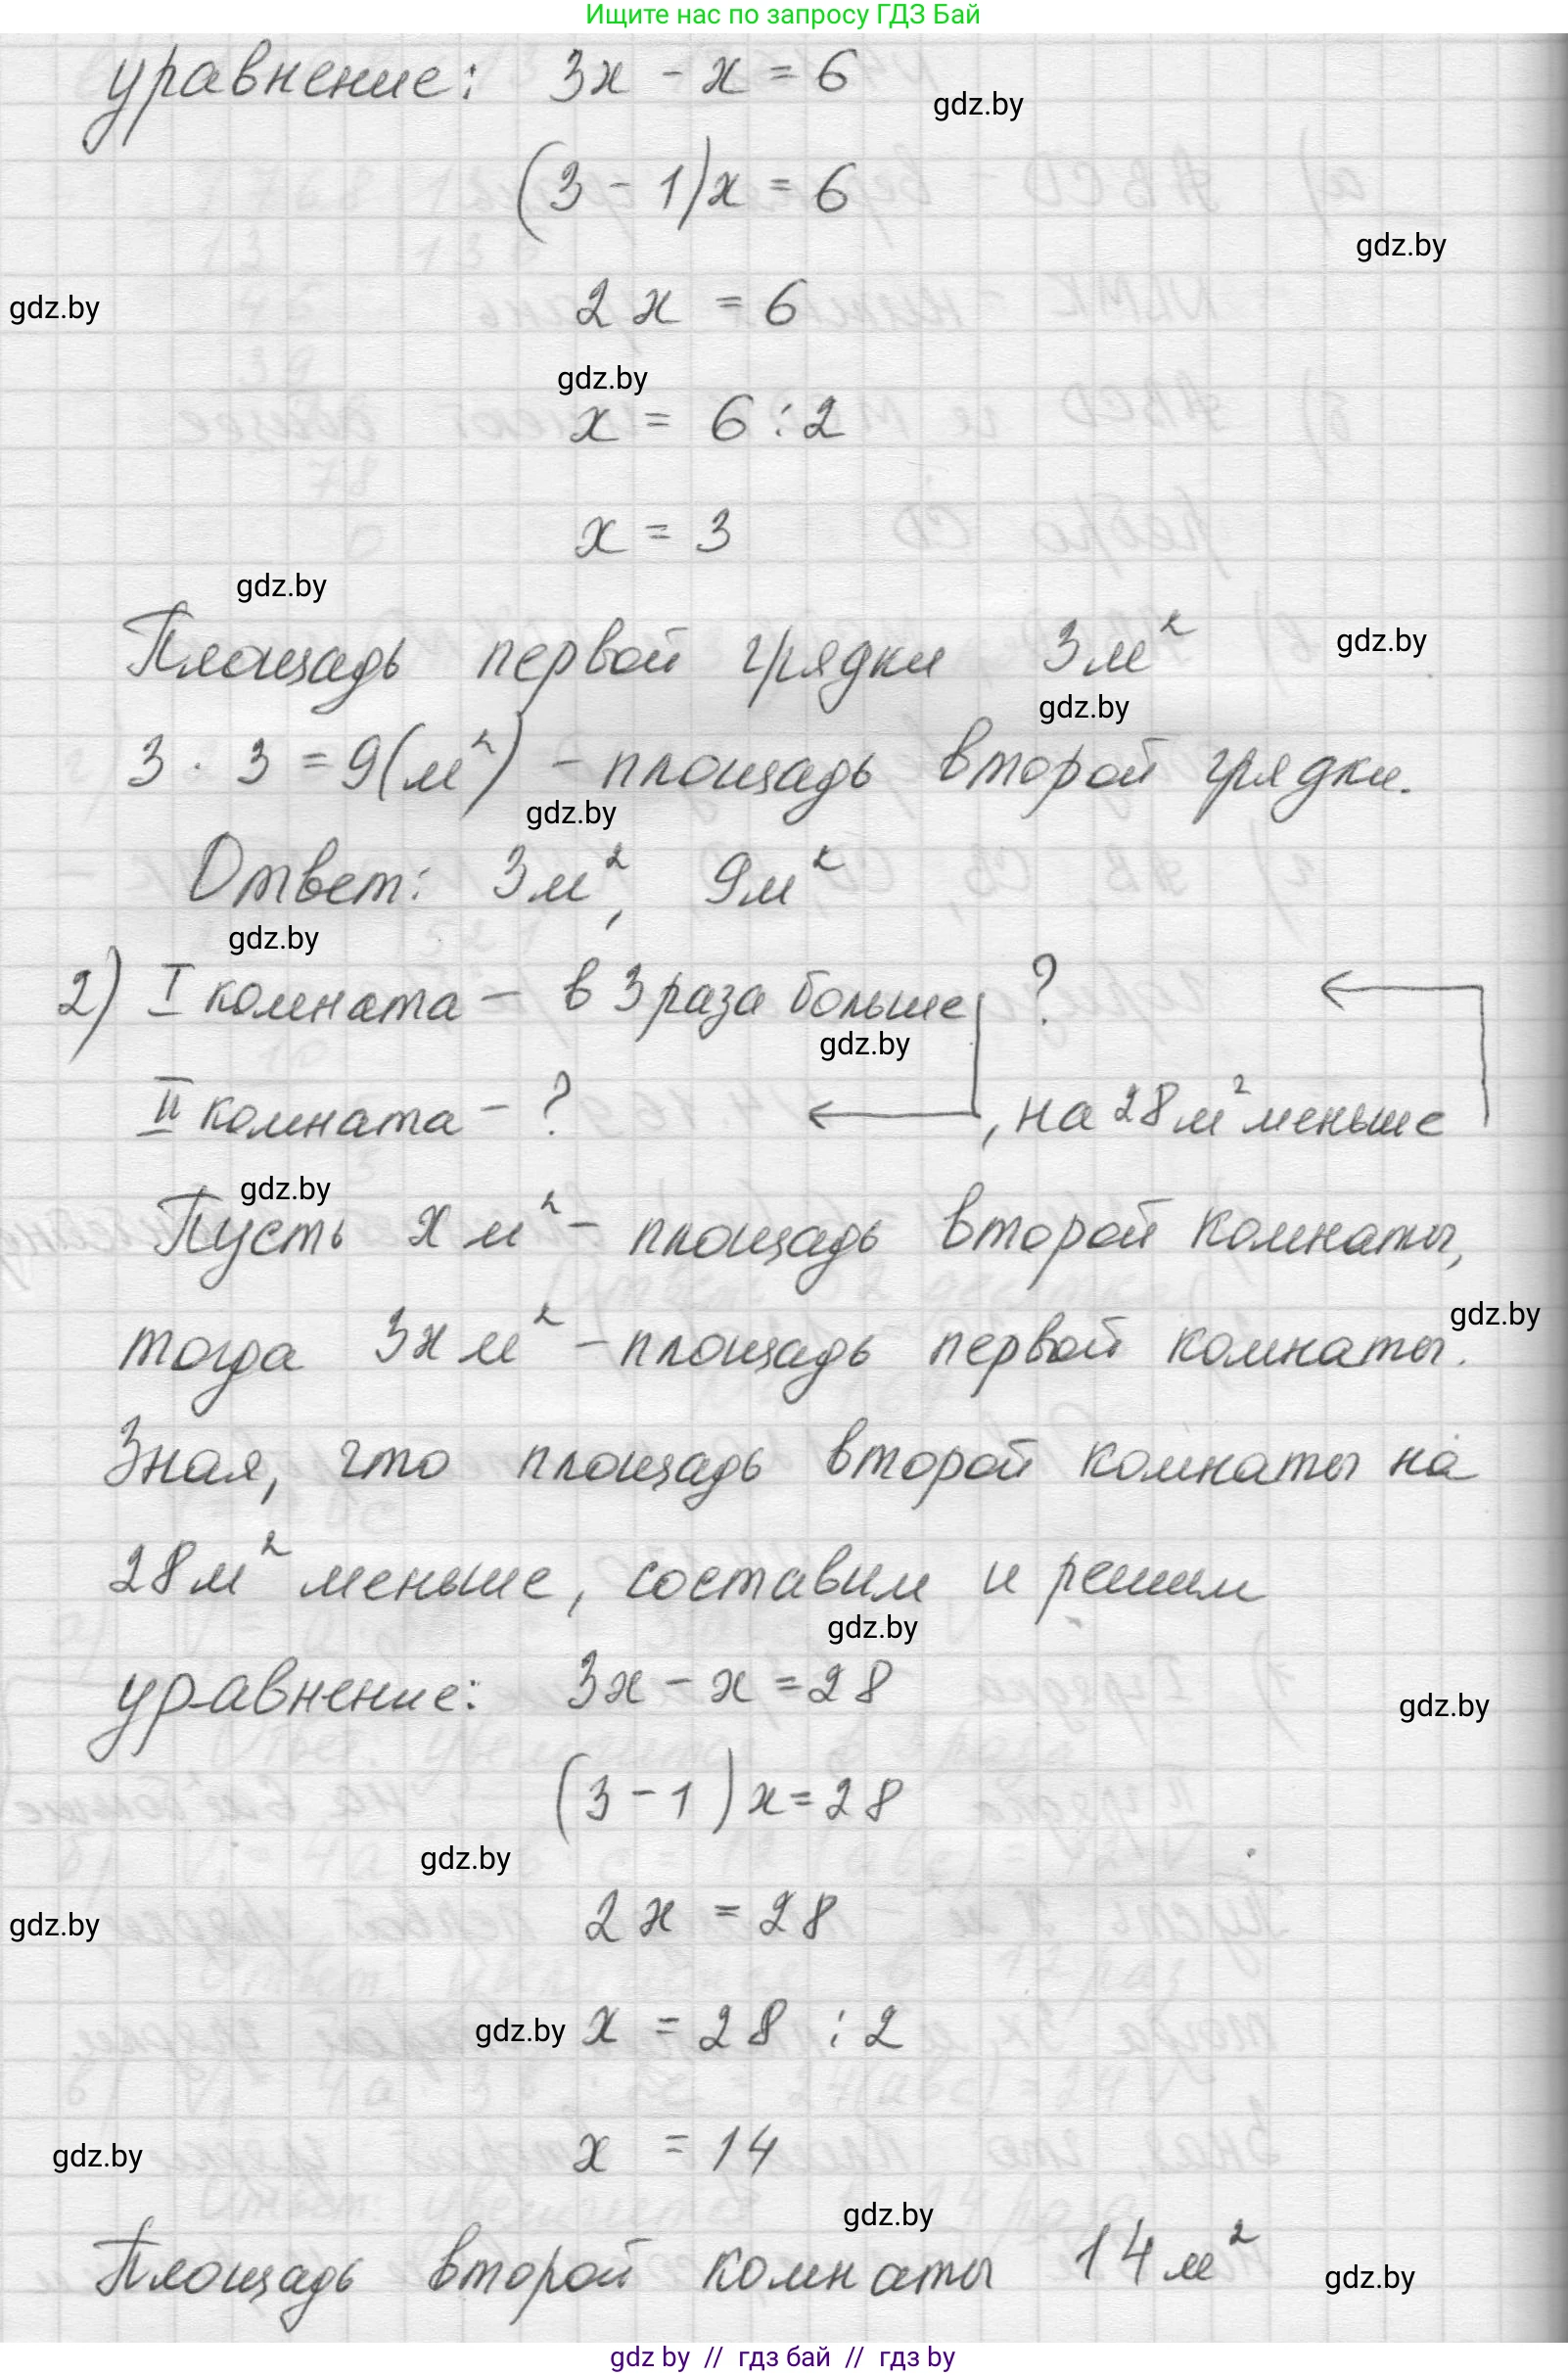 Ищите нас по запросу ГДЗ Бай
уравнение: 3x - x = 6
gdz.by
(3 - 1)x = 6
gdz.by
2x = 6
gdz.by
gdz.by
x = 6 : 2
x = 3
gdz.by
Площадь первой грядки 3м²
gdz.by
gdz.by
3 · 3 = 9(м²) - площадь второй грядки.
gdz.by
Ответ: 3м², 9м²
gdz.by
2) I комната - в 3 раза больше ?
gdz.by
II комната - ? , на 28м² меньше
gdz.by
Пусть x м² - площадь второй комнаты,
gdz.by
тогда 3x м² - площадь первой комнаты.
Зная, что площадь второй комнаты на
28м² меньше, составим и решим
gdz.by
уравнение: 3x - x = 28
gdz.by
(3 - 1)x = 28
gdz.by
2x = 28
gdz.by
gdz.by x = 28 : 2
x = 14
gdz.by
gdz.by
Площадь второй комнаты 14м²
gdz.by
gdz by // гдз бай // гдз by